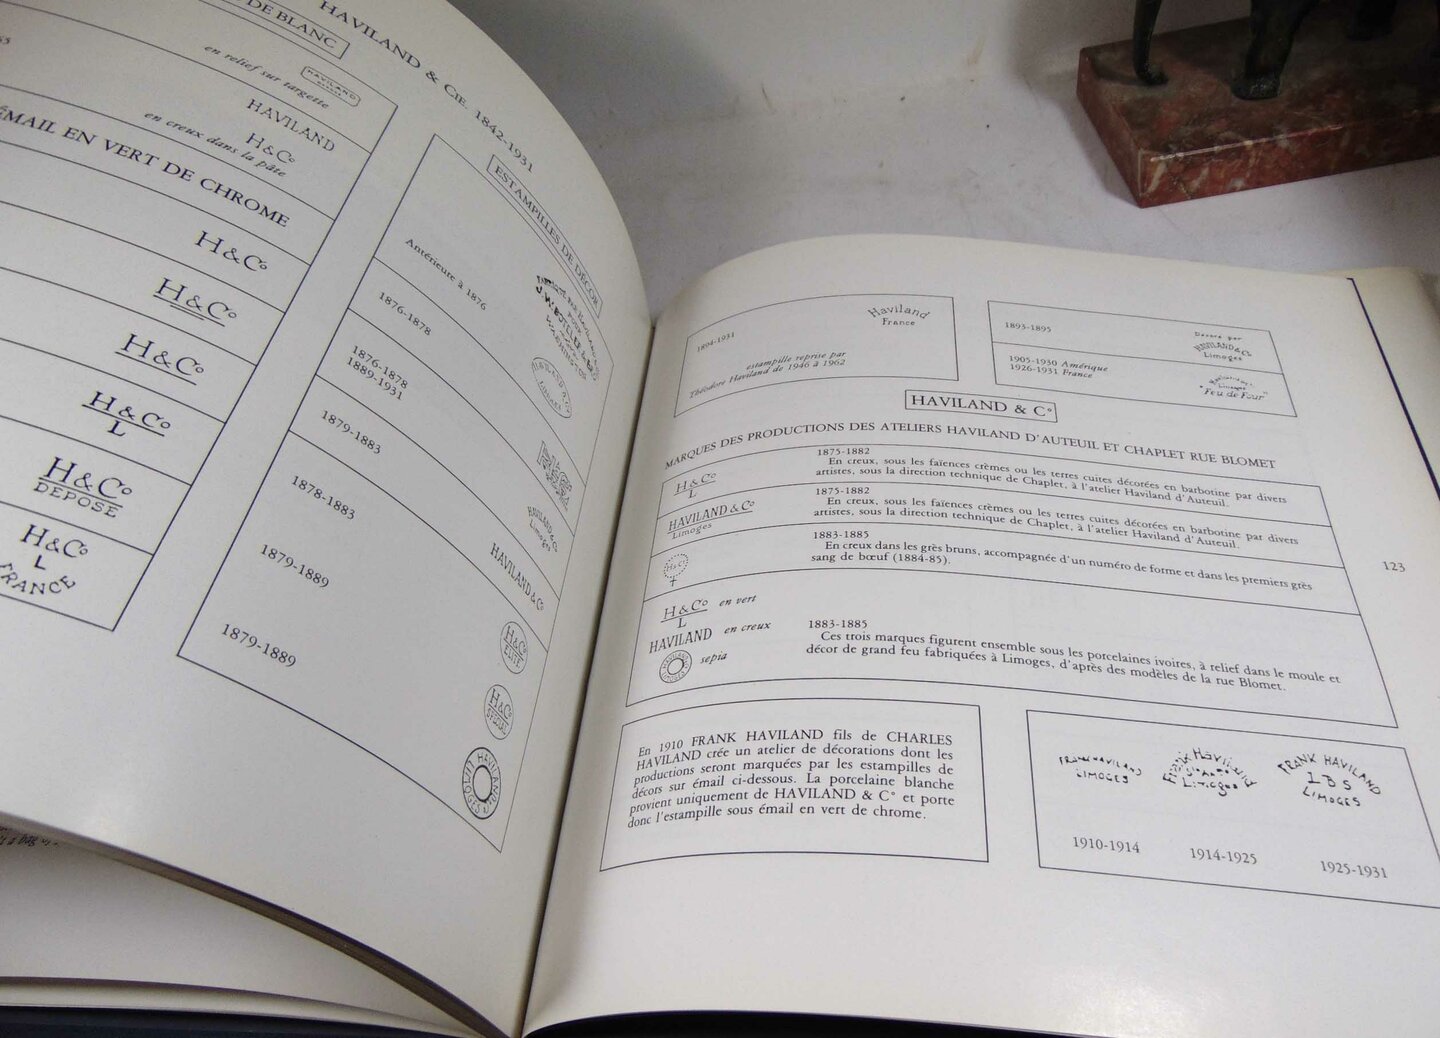 HAVILAND & CIE. 1842-1931
DE BLANC
en relief sur targette
HAVILAND
HAVILAND
H&Co
en creux dans la pâte
ÉMAIL EN VERT DE CHROME
H&Co
H&Co
H&Co
H&Co
L
H&Co
DEPOSÉ
H&Co
L
FRANCE
ESTAMPILLES DE DÉCOR
Antérieure à 1876
1876-1878
1876-1878
1889-1931
1879-1883
HAVILAND & Co
Limoges
1878-1883
HAVILAND & Co
1879-1889
H&Co
ELITE
1879-1889
H&Co
SPECIAL
HAVILAND
LIMOGES
1894-1931
Haviland
France
estampille reprise par
Théodore Haviland de 1946 à 1962
1893-1895
Décoré par
HAVILAND & Co
Limoges
1905-1930 Amérique
1926-1931 France
"Feu de Four"
HAVILAND & C°
MARQUES DES PRODUCTIONS DES ATELIERS HAVILAND D'AUTEUIL ET CHAPLET RUE BLOMET
H & Co
L
1875-1882
En creux, sous les faïences crèmes ou les terres cuites décorées en barbotine par divers
artistes, sous la direction technique de Chaplet, à l'atelier Haviland d'Auteuil.
HAVILAND & Co
Limoges
1875-1882
En creux, sous les faïences crèmes ou les terres cuites décorées en barbotine par divers
artistes, sous la direction technique de Chaplet, à l'atelier Haviland d'Auteuil.
H&Co
1883-1885
En creux dans les grès bruns, accompagnée d'un numéro de forme et dans les premiers grès
sang de bœuf (1884-85).
123
H & Co en vert
L
HAVILAND en creux
sepia
1883-1885
Ces trois marques figurent ensemble sous les porcelaines ivoires, à relief dans le moule et
décor de grand feu fabriquées à Limoges, d'après des modèles de la rue Blomet.
En 1910 FRANK HAVILAND fils de CHARLES
HAVILAND crée un atelier de décorations dont les
productions seront marquées par les estampilles de
décors sur émail ci-dessous. La porcelaine blanche
provient uniquement de HAVILAND & C° et porte
donc l'estampille sous émail en vert de chrome.
FRANK HAVILAND
LIMOGES
1910-1914
Frank Haviland
Limoges
1914-1925
FRANK HAVILAND
LIMOGES
1925-1931